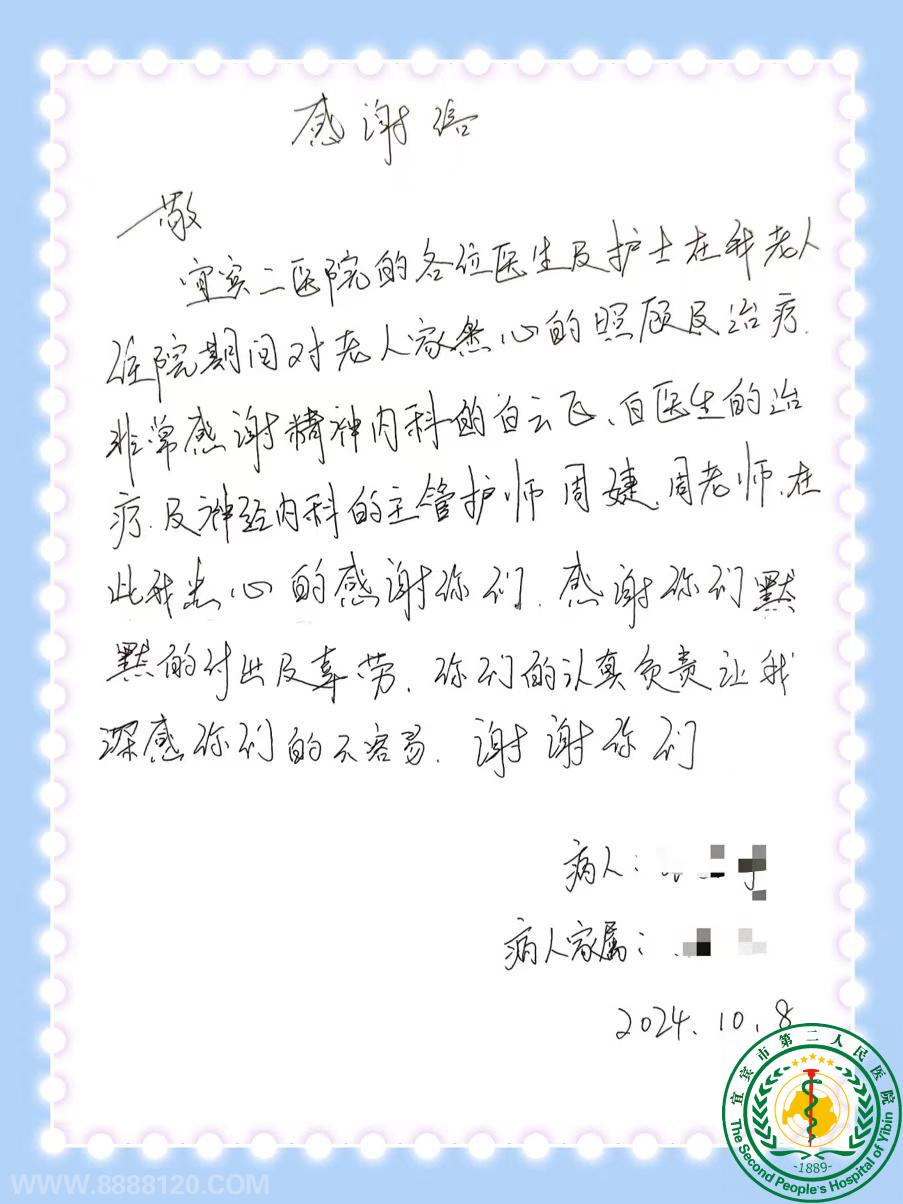 感谢信
一敬
宜宾二医院的各位医生及护士在我老人
住院期间对老人家悉心的照顾及治疗.
非常感谢精神内科的白云飞、白医生的治
疗.及神经内科的主管护师周婕、周老师.在
此我忠心的感谢你们.感谢你们默
默的付出及辜劳.你们的认真负责让我
深感你们的不容易.谢谢你们
病人:
病人家属:
2024.10.8
宜宾市第二人民医院
The Second People's Hospital of Yibin
-1889-
WWW.8888120.COM